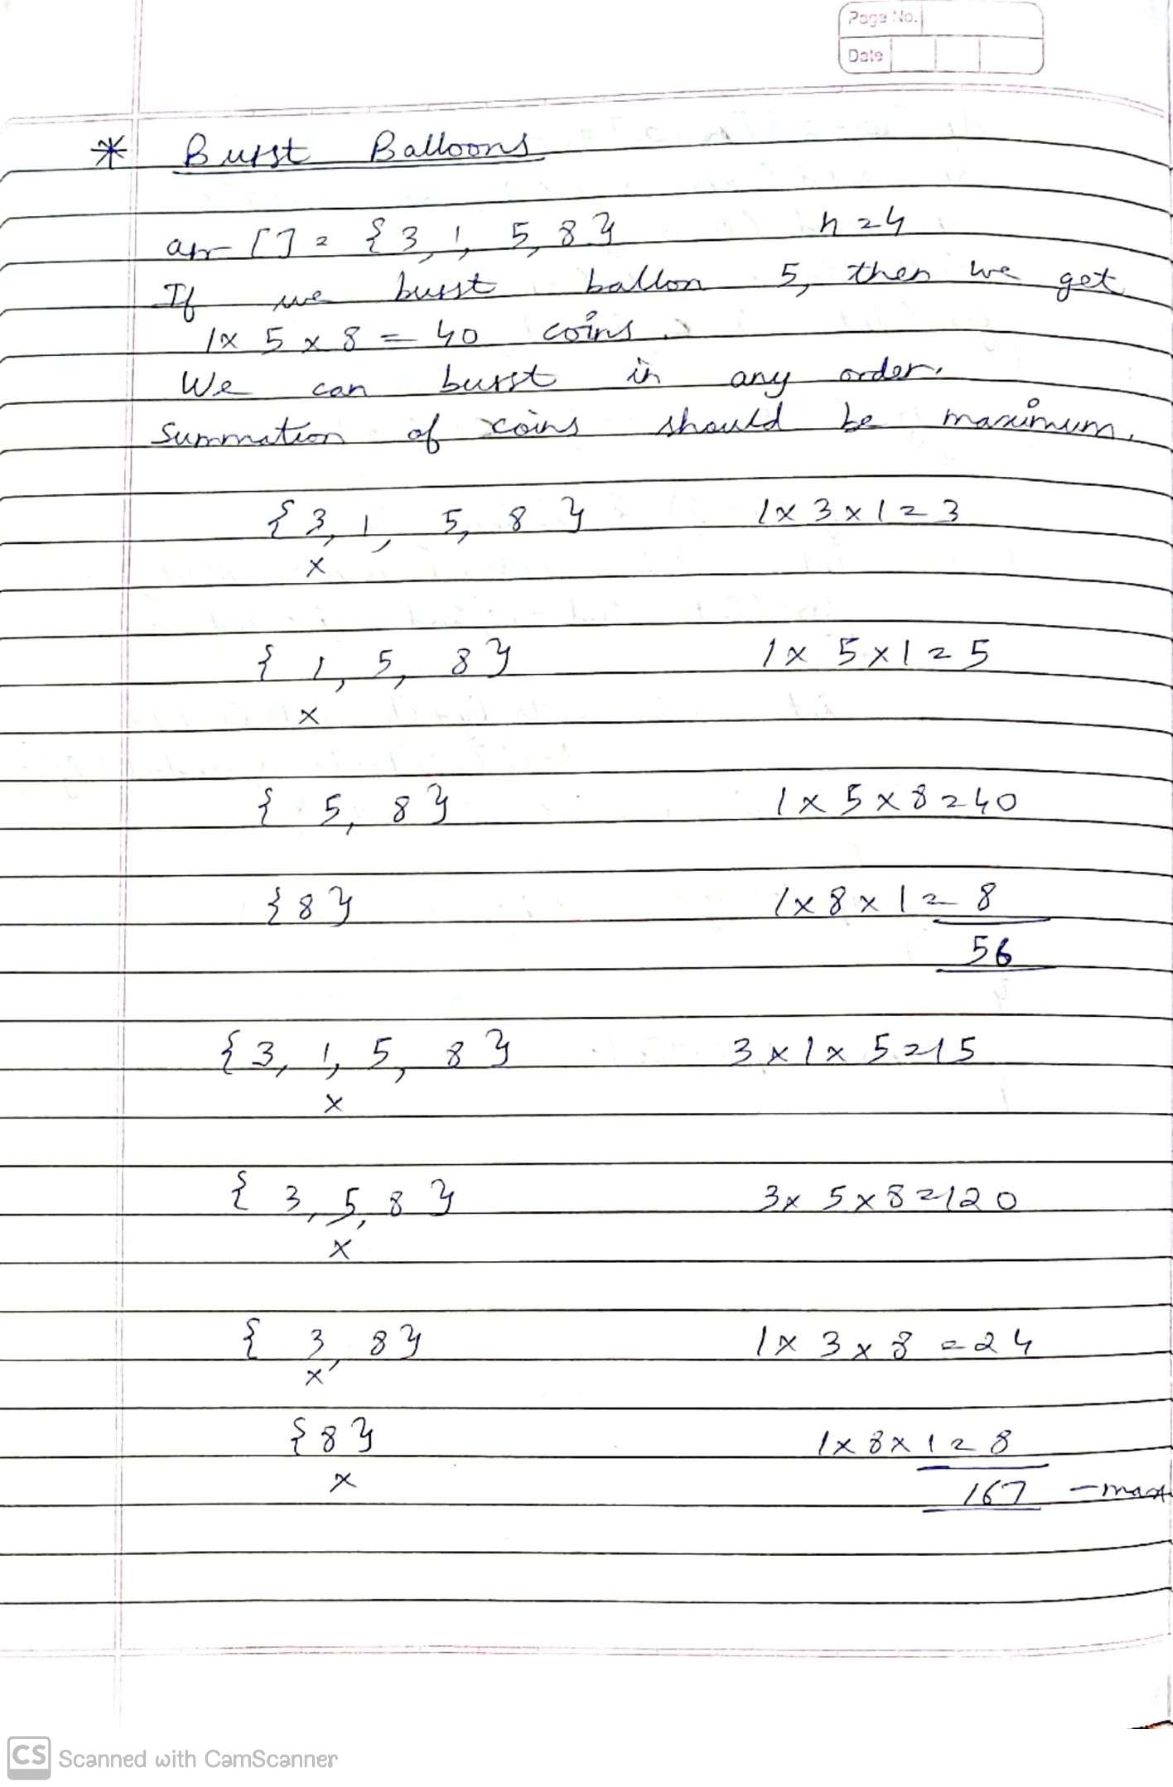 Page No.
Date
* Burst Balloons
arr[] = {3, 1, 5, 8} n=4
If we burst ballon 5, then we get
1x 5 x 8 = 40 coins.
We can burst in any order.
Summation of coins should be maximum.
{3, 1, 5, 8} 1x3x1=3
x
{1, 5, 8} 1x5x1=5
x
{5, 8} 1x5x8=40
{8} 1x8x1=8
56
{3, 1, 5, 8} 3x1x5=15
x
{3, 5, 8} 3x5x8=120
x
{3, 8} 1x3x8=24
x
{8} 1x8x1=8
x 167 - max
CS Scanned with CamScanner